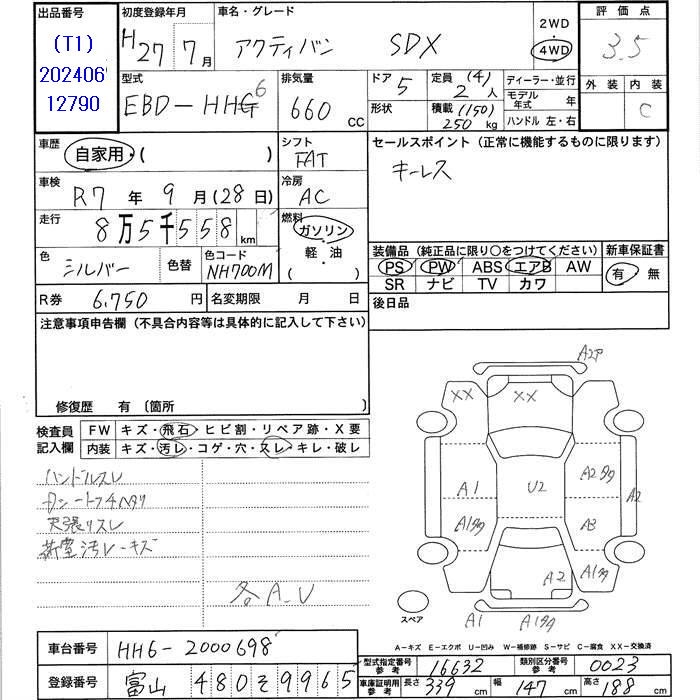 出品番号
(T1)
202406
12790
初度登録年月
H27年7月
車名・グレード
アクティバン SDX
2WD
4WD
評価点
3.5
外装 内装
C
型式
EBD-HH6
排気量
660 cc
ドア 5
形状
定員 (4) 2 人
積載 (150) 250 kg
ディーラー・並行
モデル年式 年
ハンドル 左・右
車歴
自家用・( )
シフト
FAT
車検
R7年9月(28日)
冷房
AC
走行
8万5千558 km
燃料
ガソリン
軽・油
( )
色
シルバー
色替
色コード
NH700M
R券 6,750 円
名変期限 月 日
セールスポイント (正常に機能するものに限ります)
キーレス
装備品 (純正品に限り〇をつけてください)
PS PW ABS エアB AW
SR ナビ TV カワ
新車保証書
有 無
後日品
注意事項申告欄 (不具合内容等は具体的に記入して下さい)
修復歴 有 〔箇所 〕
検査員記入欄
FW キズ・飛石・ヒビ割・リペア跡・X要
内装 キズ・汚レ・コゲ・穴・スレ・キレ・破レ
ハンドルスレ
天張リスレ
荷室汚レキズ
各A-U
XX
XX
A1
U2
A2
A3
A2
A1
スペア
A-キズ E-エクボ U-凹み W-補修跡 S-サビ C-腐食 XX-交換済
車台番号 HH6-2000698
登録番号 富山 480 そ 9965
型式指定番号 参考 16632
類別区分番号 参考 0023
車庫証明用 参考 長さ 339 cm 幅 147 cm 高さ 188 cm